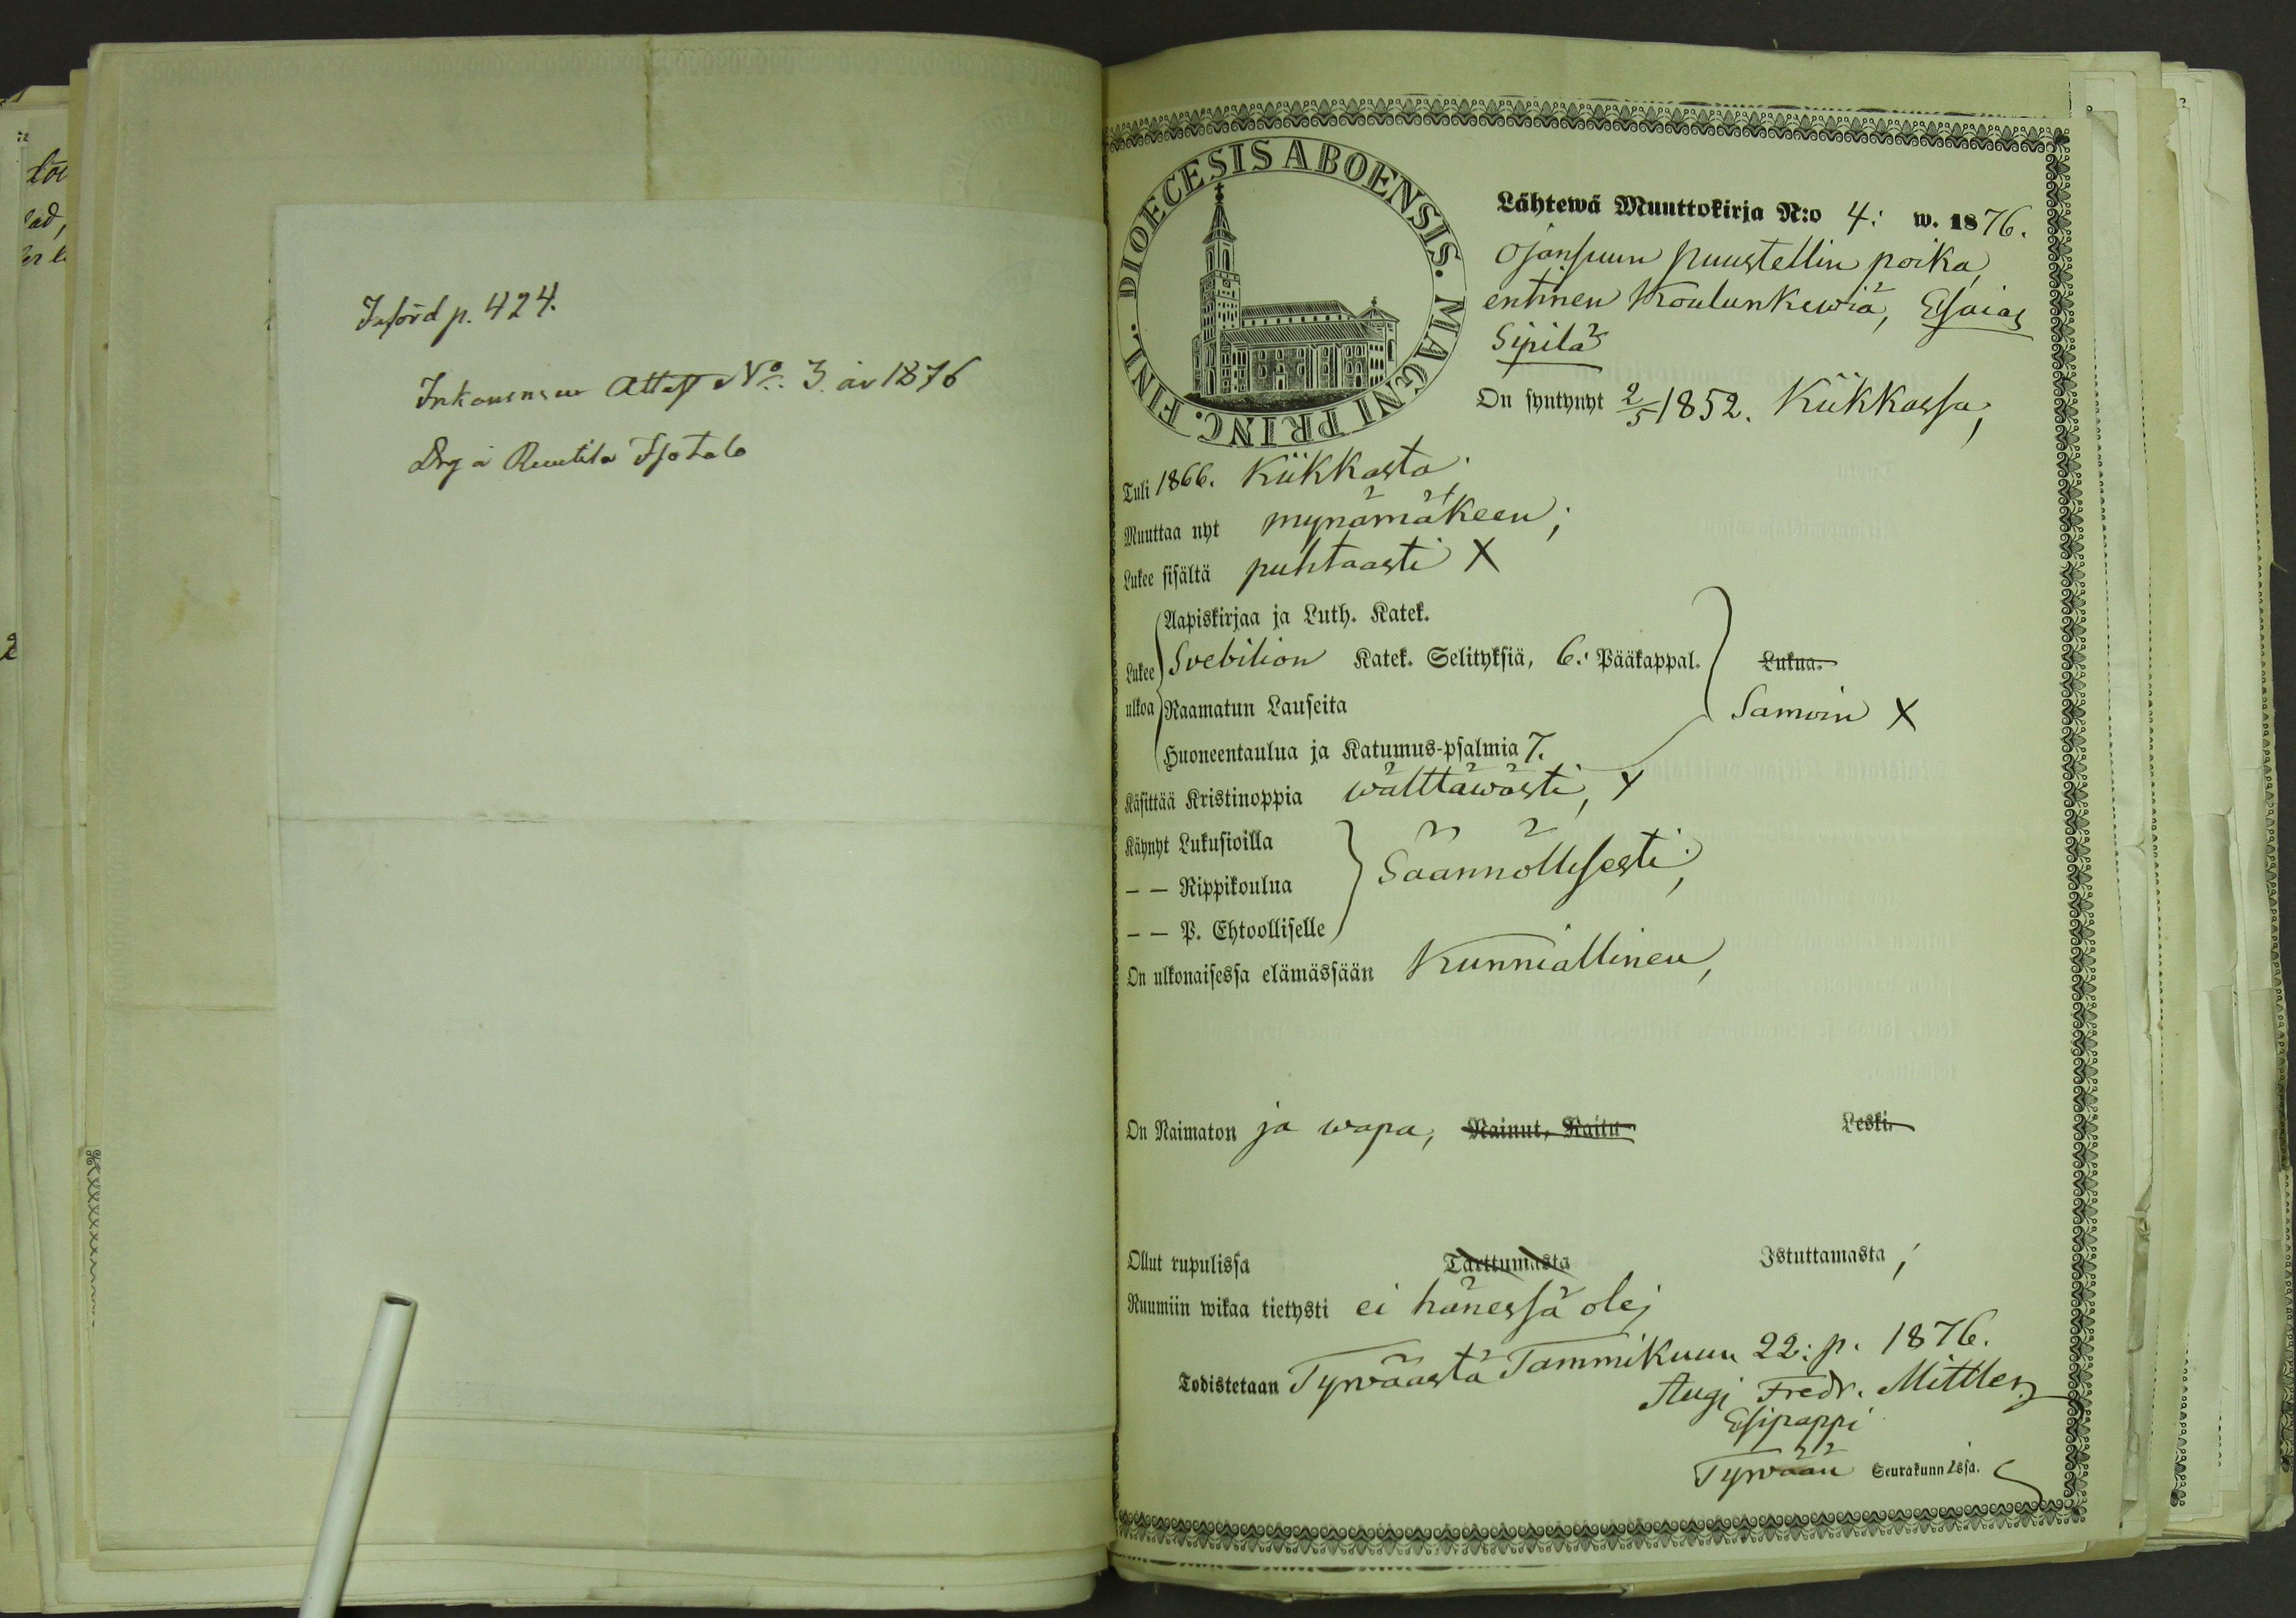 Införd p. 424.
Inkommen Attest No. 3. år 1876
Drg å Ruutila Isotalo
DIOECESIS ABOENSIS. MAGNI PRINC. FINL.
Lähtewä Muuttokirja N:o 4: w. 1876.
Ojansuun puustellin poika,
entinen Koulunkewiä, Esaias
Sipilä
On syntynyt 2/5 1852. Kiikkassa;
Tuli 1866. Kiikkasta;
Muuttaa nyt mynämäkeen;
Lukee sisältä puhtaasti X
Aapiskirjaa ja Luth. Katek.
Lukee Svebilion Katek. Selityksiä, 6: Pääkappal. Lukua.
ulkoa Raamatun Lauseita Samoin X
Huoneentaulua ja Katumus-psalmia 7.
Käsittää Kristinoppia wälttäwästi, X
Käynyt Lukusioilla
– – Rippikoulua Säännöllisesti;
– – P. Ehtoolliselle
On ulkonaisessa elämässään Kunniallinen,
On Naimaton ja wapa, Nainut, Naitu Leski.
Ollut rupulissa Tarttumasta Istuttamasta;
Ruumiin wikaa tietysti ei hänessä ole;
Todistetaan Tyrväästä Tammikuun 22: p. 1876.
Aug: Fredr. Mittler
Esipappi
Tyrvään Seurakunnassa.